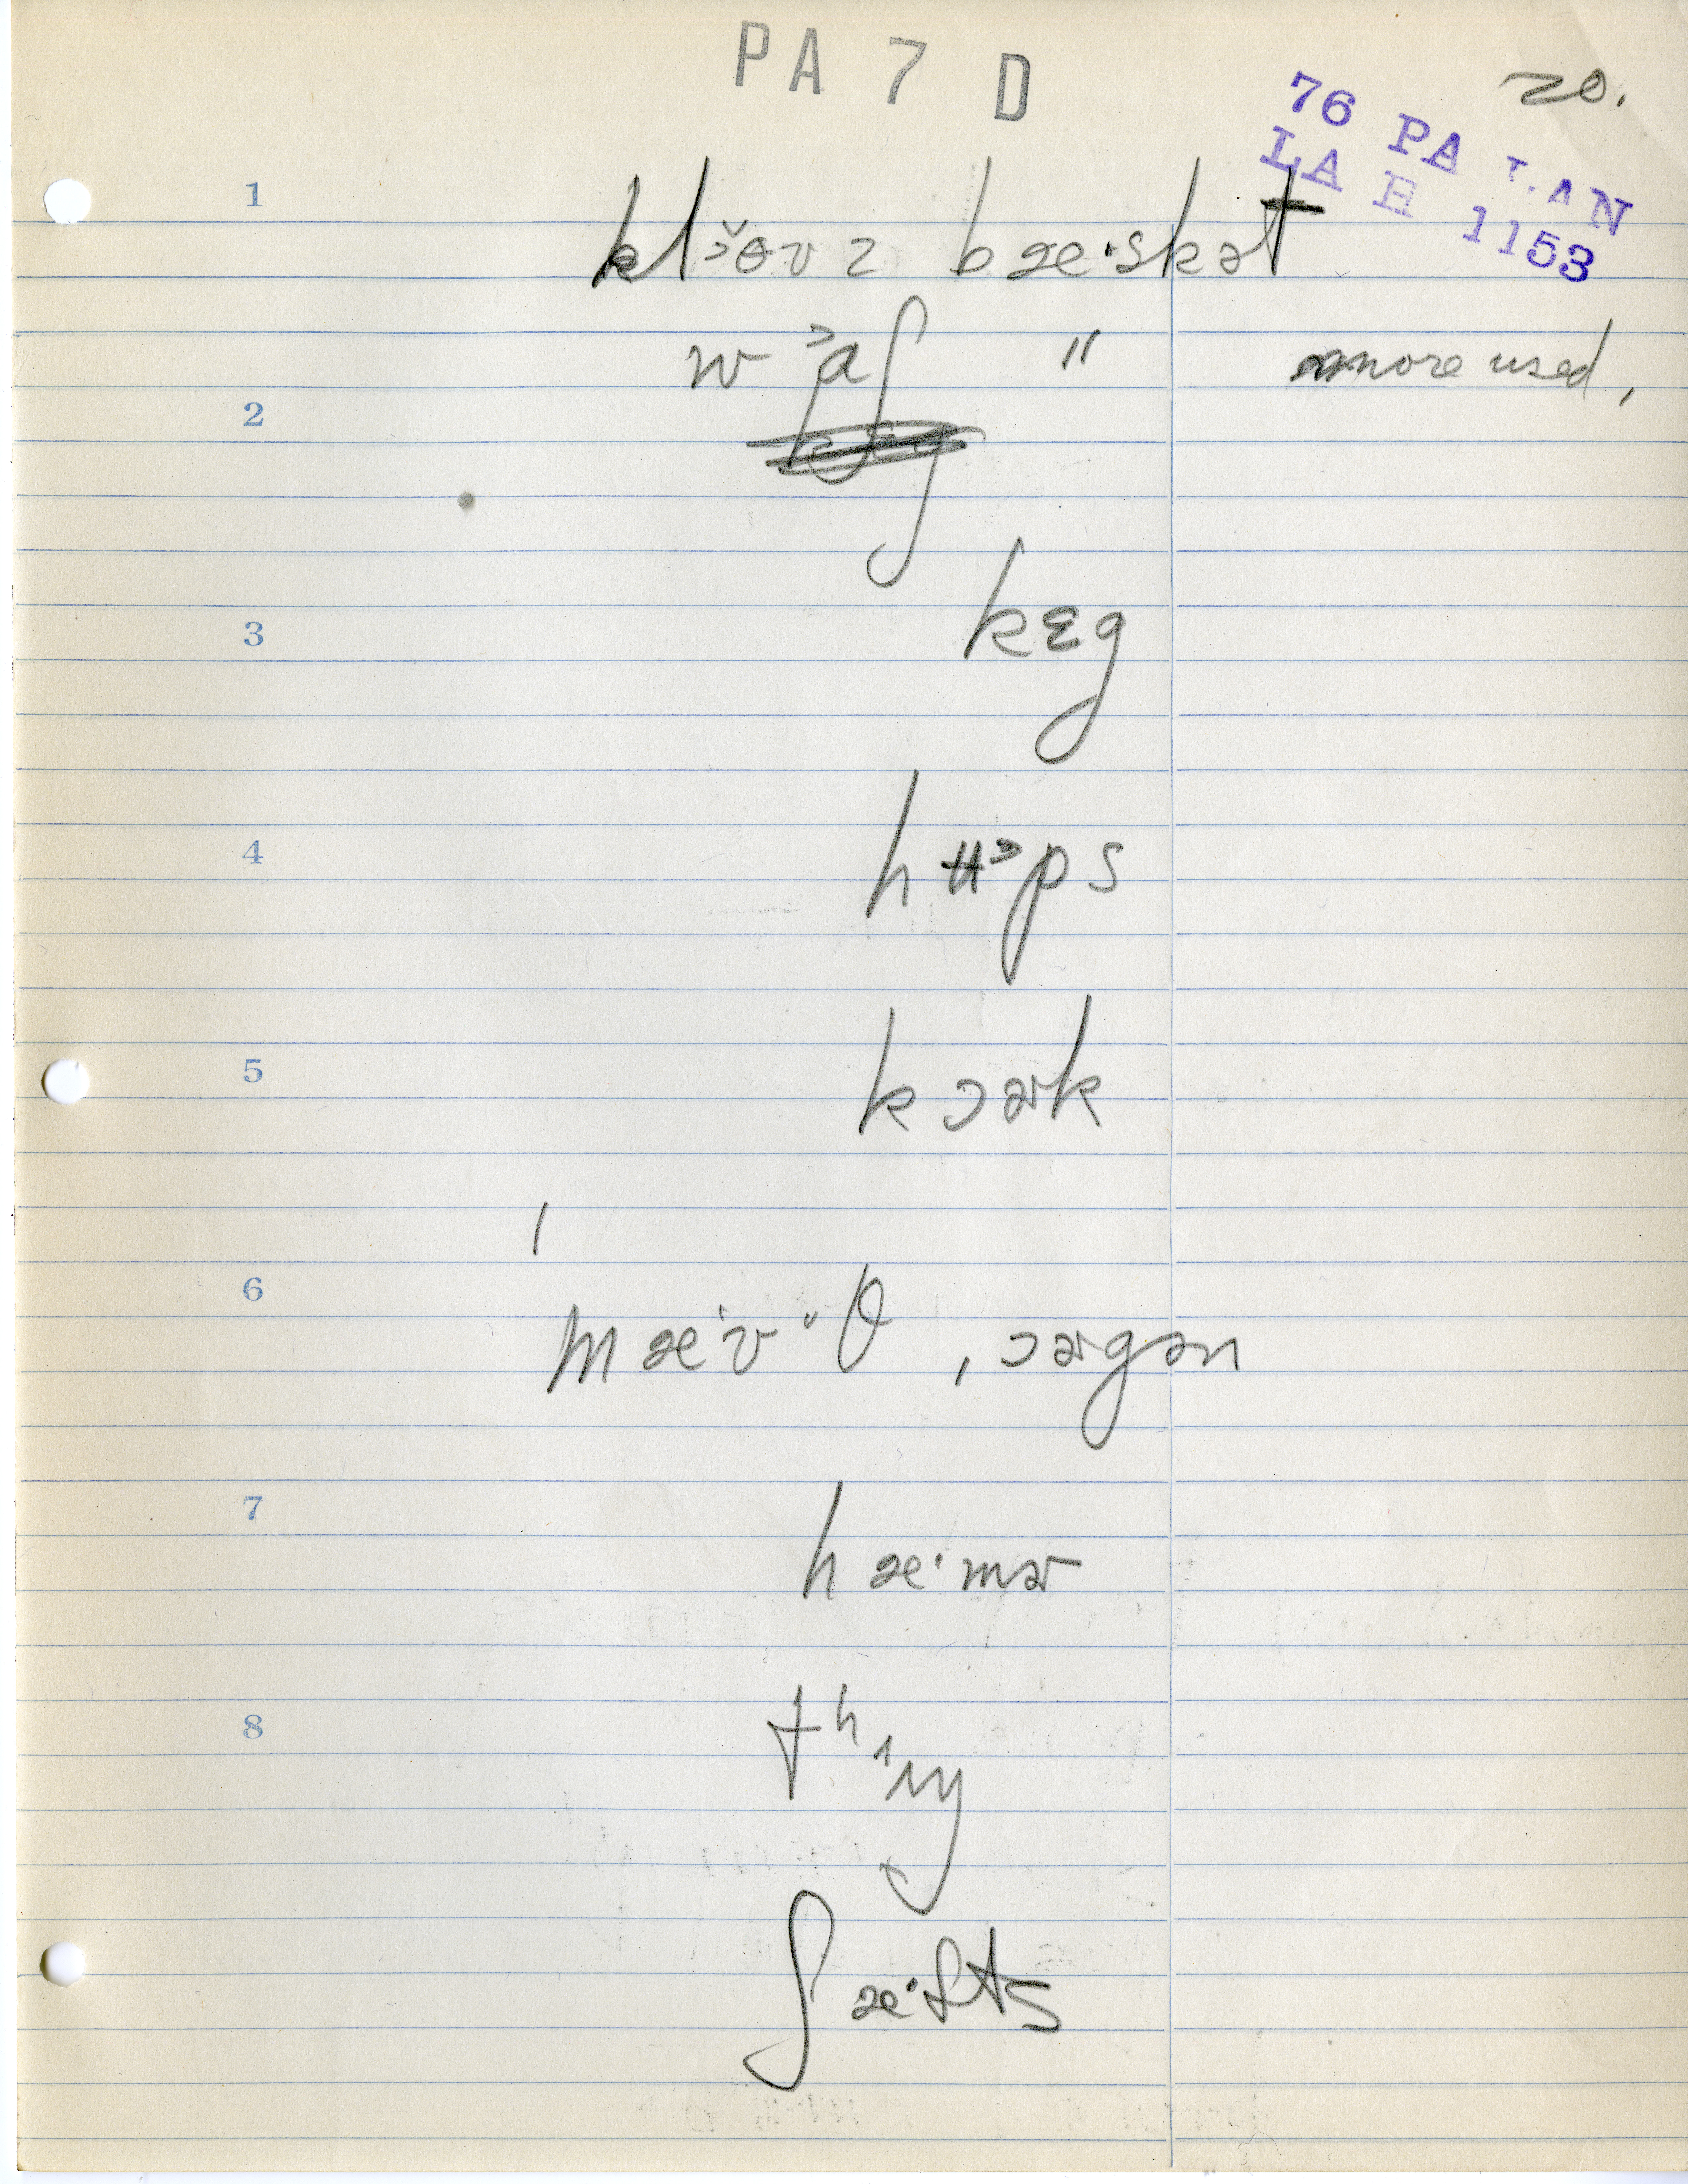 PA 7 D
20.
76 PA LAN
LA H 1153
1
kl˃ɵ̌vz bæ·skət
wɑʃ " more used,
2
3
kɛg
4
hʉ˃ps
5
kɔɚk
6
mæ·vᵊθ ˌɔɚgən
7
hæ·mɚ
8
tʰʌŋ
ʃæ·fts